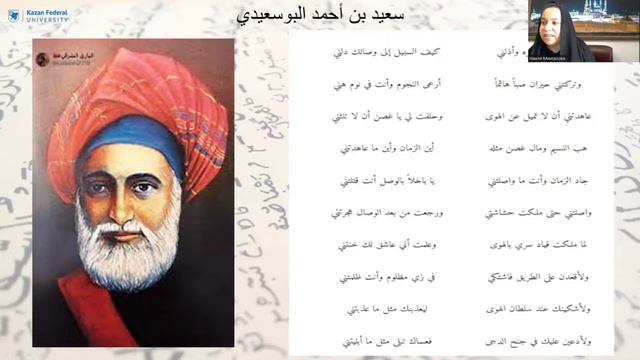 Kazan Federal
UNIVERSITY
سعيد بن أحمد البوسعيدي
وأذلني كيف السبيل إلى وصالك دلني
وتركتني حيران صباً هائماً أرعى النجوم وأنت في نوم هني
عاهدتني أن لا تميل عن الهوى وحلفت لي يا غصن أن لا تنثني
هب النسيم ومال غصن مثله أين الزمان وأين ما عاهدتني
جاد الزمان وأنت ما واصلتني يا باخلاً بالوصل أنت قتلتني
واصلتني حتى ملكت حشاشتي ورجعت من بعد الوصال هجرتني
لما ملكت قياد سري بالهوى وعلمت أني عاشق لك خنتني
ولأقعدن على الطريق فاشتكي في زي مظلوم وأنت ظلمتني
ولأشكينك عند سلطان الهوى ليعذبنك مثل ما عذبتني
ولأدعين عليك في جنح الدجى فعساك تبلى مثل ما أبليتني